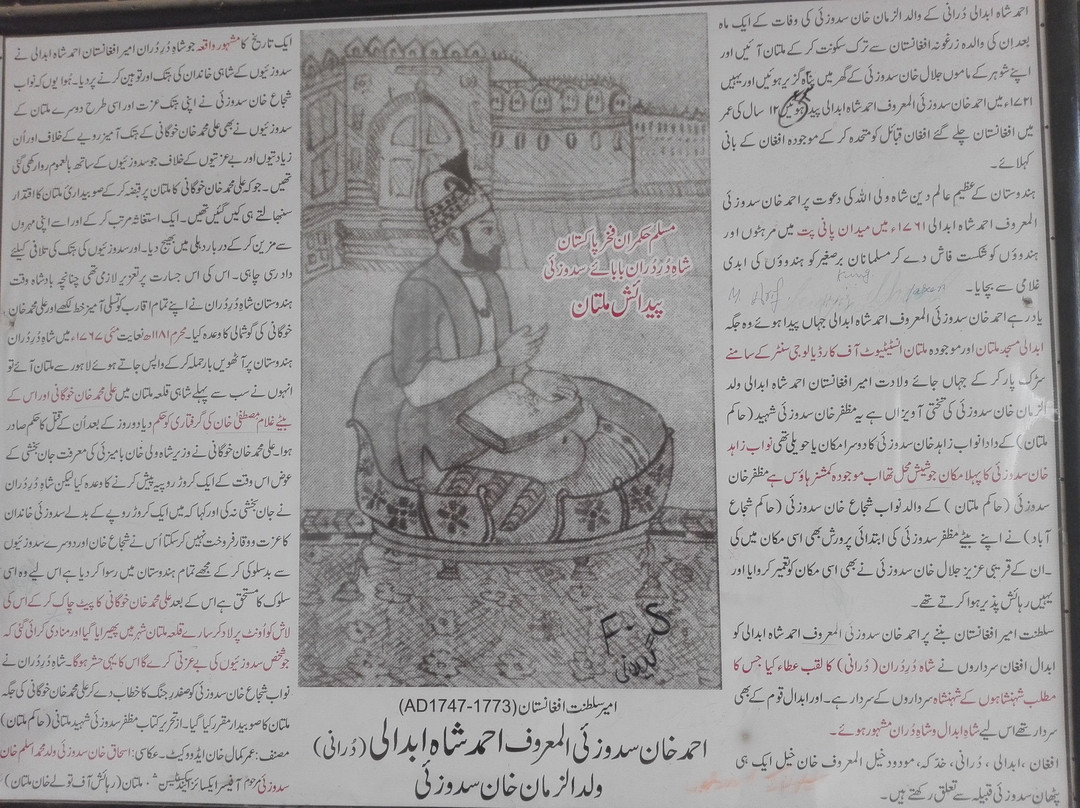 احمد شاہ ابدالی دُرانی کے والد الزمان خان سدوزئی کی وفات کے ایک ماہ
بعد اِن کی والدہ زرغونہ افغانستان سے ترک سکونت کر کے ملتان آئیں اور
اپنے شوہر کے ماموں جلال خان سدوزئی کے گھر میں پناہ گزیر ہوئیں اور یہیں
۱۷۲۱ء میں احمد خان سدوزئی المعروف احمد شاہ ابدالی پیدا ہوئیں ۱۲ سال کی عمر
میں افغانستان چلے گئے افغان قبائل کو متحد کر کے موجودہ افغان کے بانی
کہلائے۔
ہندوستان کے عظیم عالم دین شاہ ولی اللہ کی دعوت پر احمد خان سدوزئی
المعروف احمد شاہ ابدالی ۱۷۶۱ء میں میدان پانی پت میں مرہٹوں اور
ہندوؤں کو شکست فاش دے کر مسلمانان برصغیر کو ہندوؤں کی ابدی
غلامی سے بچایا۔
یاد رہے احمد خان سدوزئی المعروف احمد شاہ ابدالی جہاں پیدا ہوئے وہ جگہ
ابدالی مسجد ملتان اور موجودہ ملتان انسٹیٹیوٹ آف کارڈیالوجی سنٹر کے سامنے
سڑک پار کر کے جہاں جائے ولادت امیر افغانستان احمد شاہ ابدالی ولد
الزمان خان سدوزئی کی تختی آویزاں ہے یہ مظفر خان سدوزئی شہید (حاکم
ملتان) کے دادا نواب زاہد خان سدوزئی کا دوسرا مکان یا حویلی تھی نواب زاہد
خان سدوزئی کا پہلا مکان جو شیش محل تھا اب موجودہ کمشنر ہاؤس ہے مظفر خان
سدوزئی (حاکم ملتان) کے والد نواب شجاع خان سدوزئی (حاکم شجاع
آباد) نے اپنے بیٹے مظفر سدوزئی کی ابتدائی پرورش بھی اسی مکان میں کی
۔ان کے قریبی عزیز جلال خان سدوزئی نے بھی اسی مکان کو تعمیر کروایا اور
یہیں رہائش پذیر ہوا کرتے تھے۔
سلطنت امیر افغانستان بننے پر احمد خان سدوزئی المعروف احمد شاہ ابدالی کو
ابدال افغان سرداروں نے شاہ دُرِدُران (دُرانی) کا لقب عطاء کیا جس کا
مطلب شہنشاہوں کے شہنشاہ سرداروں کے سردار ہے۔ اور ابدال قوم کے بھی
سردار تھے اس لیے شاہ ابدال و شاہ دُران مشہور ہوئے۔
افغان، ابدالی، دُرانی، خدکہ، مودود خیل المعروف خان خیل ایک ہی
پٹھان سدوزئی قبیلہ سے تعلق رکھتے ہیں۔
مسلم حکمران فخرِ پاکستان
شاہ دُرِدُران بابائے سدوزئی
پیدائش ملتان
F. S
امیر سلطنت افغانستان (AD1747-1773)
احمد خان سدوزئی المعروف احمد شاہ ابدالی (دُرانی)
ولد الزمان خان سدوزئی
ایک تاریخ کا مشہور واقعہ جو شاہ دُرِدُران امیر افغانستان احمد شاہ ابدالی نے
سدوزئیوں کے شاہی خاندان کی ہتک اور توہین کرنے پر دیا۔ ہوا یوں کہ نواب
شجاع خان سدوزئی نے اپنی ہتک عزت اور اسی طرح دوسرے ملتان کے
سدوزئیوں نے بھی علی محمد خان خوگانی کے ہتک آمیز رویے کے خلاف اور اُن
زیادتیوں اور بے عزتیوں کے خلاف جو سدوزئیوں کے ساتھ بالعموم روا رکھی گئی
تھیں۔ جو کہ علی محمد خان خوگانی کا ملتان پر قبضہ کر کے صوبیداریٔ ملتان کا اقتدار
سنبھالتے ہی کیں گئیں تھیں۔ ایک استغاثہ مرتب کر کے اور اسے اپنی مہروں
سے مزین کر کے دربار دہلی میں بھیج دیا۔ اور سدوزئیوں کی ہتک کی تلافی کیلئے
داد رسی چاہی۔ اس کی اس جسارت پر تعزیر لازمی تھی چنانچہ بادشاہ وقت
ہندوستان شاہ دُرِدُران نے اپنے تمام اقارب کو تسلی آمیز خط لکھے اور علی محمد خان
خوگانی کی گوشمالی کا وعدہ کیا۔ محرم ۱۱۸۱ھ لغایت مئی ۱۷۶۷ء میں شاہ دُرِدُران
ہندوستان پر آٹھویں بار حملہ کر کے واپس جاتے ہوئے لاہور سے ملتان آئے تو
انہوں نے سب سے پہلے شاہی قلعہ ملتان میں علی محمد خان خوگانی اور اس کے
بیٹے غلام مصطفیٰ خان کی گرفتاری کو حکم دیا دو روز کے بعد اُن کے قتل کا حکم صادر
ہوا۔ علی محمد خان خوگانی نے وزیر شاہ ولی خان بامیزئی کی معرفت جان بخشی کے
عوض اس وقت کے ایک کروڑ روپیہ پیش کرنے کا وعدہ کیا لیکن شاہ دُرِدُران
نے جان بخشی نہ کی اور کہا کہ میں ایک کروڑ روپے کے بدلے سدوزئی خاندان
کا عزت و وقار فروخت نہیں کر سکتا اُس نے شجاع خان اور دوسرے سدوزئیوں
سے بدسلوکی کر کے مجھے تمام ہندوستان میں رسوا کر دیا ہے اس لیے وہ اسی
سلوک کا مستحق ہے اس کے بعد علی محمد خان خوگانی کا پیٹ چاک کر کے اس کی
لاش کو اُونٹ پر لاد کر سارے قلعہ ملتان شہر میں پھیرایا گیا اور منادی کرائی گئی کہ
جو شخص سدوزئیوں کی بے عزتی کرے گا اس کا یہی حشر ہوگا۔ شاہ دُرِدُران نے
نواب شجاع خان سدوزئی کو صفدر جنگ کا خطاب دے کر علی محمد خان خوگانی کی جگہ
ملتان کا صوبیدار مقرر کیا گیا۔ از تحریر کتاب مظفر سدوزئی شہید ملتانی (حاکم ملتان)
مصنف: عمر کمال خان ایڈووکیٹ۔ عکاسی: اسحاق خان سدوزئی ولد محمد اسلم خان
سدوزئی مرحوم آفیسر ایکسائز اینڈ ٹیکسیشن ملتان (رہائش آف تولے خان ملتان)